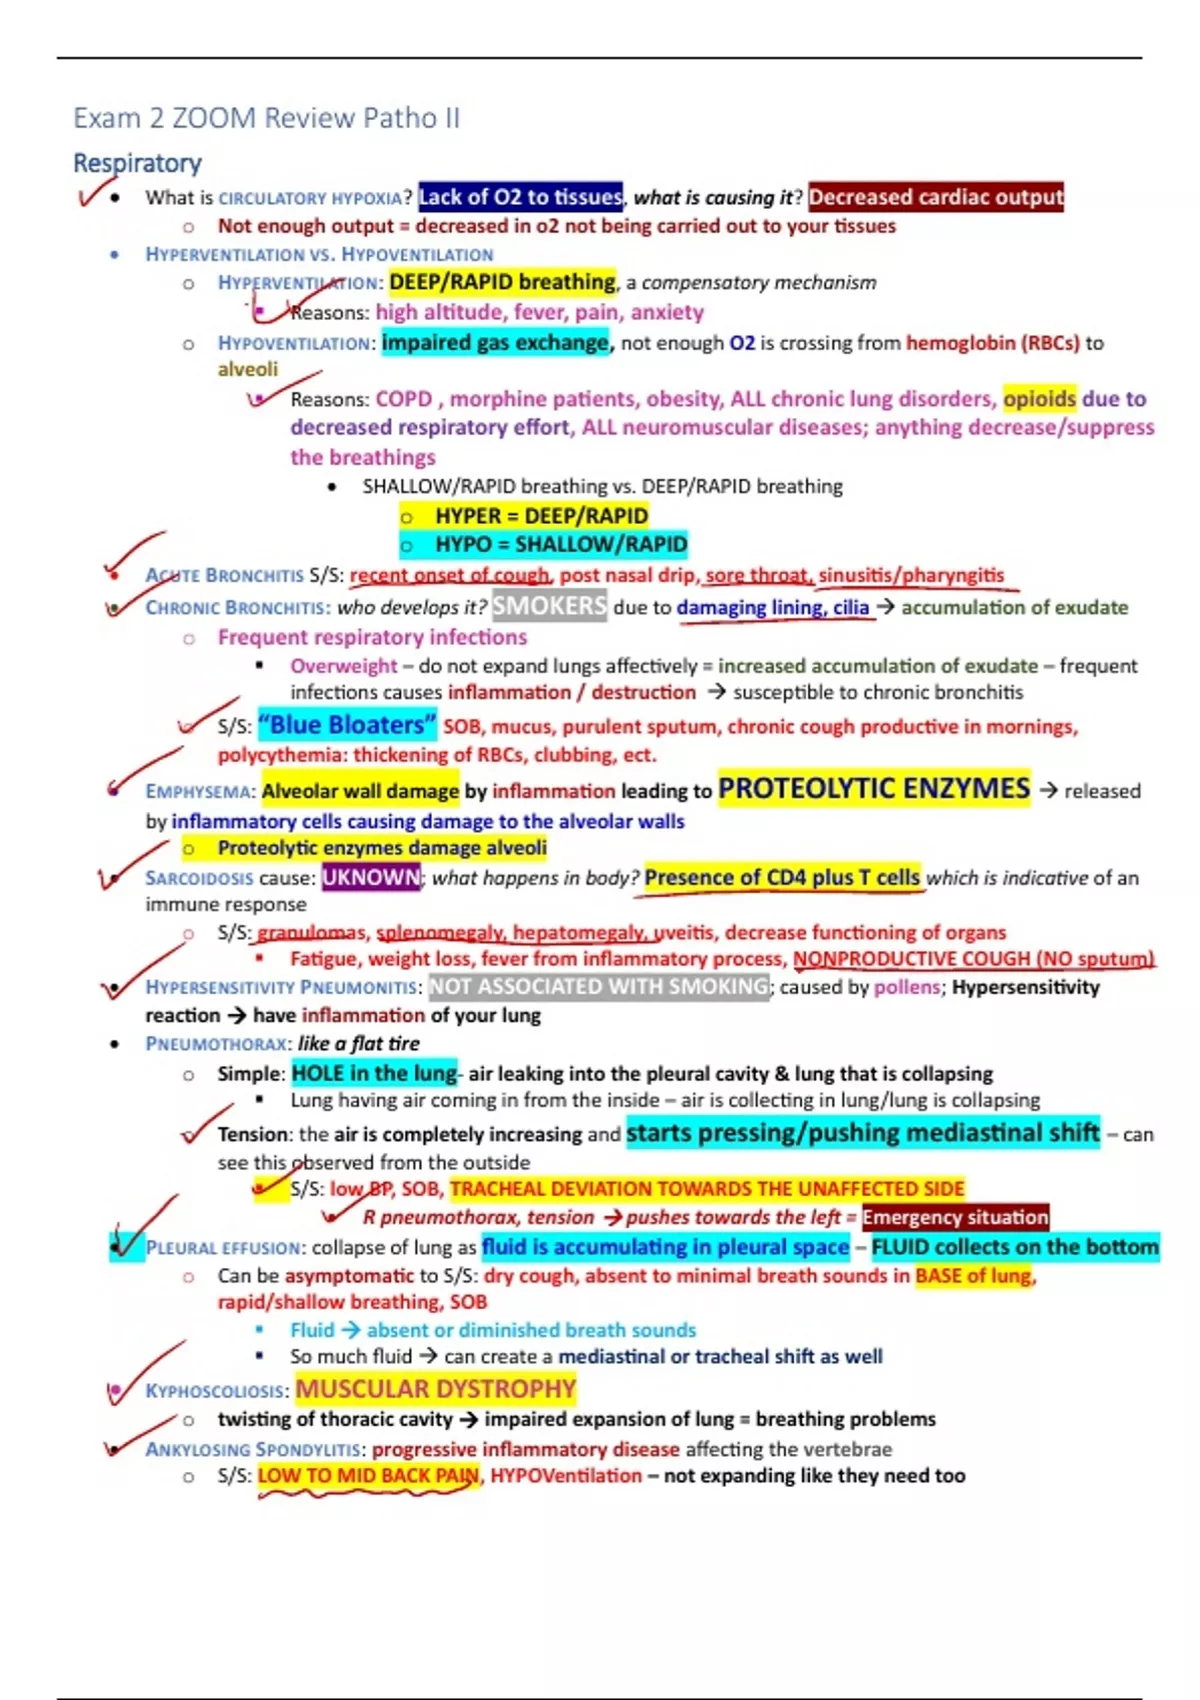 Exam 2 ZOOM Review Patho II
Respiratory
• What is CIRCULATORY HYPOXIA? Lack of O2 to tissues, what is causing it? Decreased cardiac output
o Not enough output = decreased in o2 not being carried out to your tissues
• HYPERVENTILATION VS. HYPOVENTILATION
o HYPERVENTILATION: DEEP/RAPID breathing, a compensatory mechanism
▪ Reasons: high altitude, fever, pain, anxiety
o HYPOVENTILATION: impaired gas exchange, not enough O2 is crossing from hemoglobin (RBCs) to
alveoli
▪ Reasons: COPD , morphine patients, obesity, ALL chronic lung disorders, opioids due to
decreased respiratory effort, ALL neuromuscular diseases; anything decrease/suppress
the breathings
• SHALLOW/RAPID breathing vs. DEEP/RAPID breathing
o HYPER = DEEP/RAPID
o HYPO = SHALLOW/RAPID
• ACUTE BRONCHITIS S/S: recent onset of cough, post nasal drip, sore throat, sinusitis/pharyngitis
• CHRONIC BRONCHITIS: who develops it? SMOKERS due to damaging lining, cilia → accumulation of exudate
o Frequent respiratory infections
▪ Overweight – do not expand lungs affectively = increased accumulation of exudate – frequent
infections causes inflammation / destruction → susceptible to chronic bronchitis
o S/S: “Blue Bloaters” SOB, mucus, purulent sputum, chronic cough productive in mornings,
polycythemia: thickening of RBCs, clubbing, ect.
• EMPHYSEMA: Alveolar wall damage by inflammation leading to PROTEOLYTIC ENZYMES → released
by inflammatory cells causing damage to the alveolar walls
o Proteolytic enzymes damage alveoli
• SARCOIDOSIS cause: UKNOWN; what happens in body? Presence of CD4 plus T cells which is indicative of an
immune response
o S/S: granulomas, splenomegaly, hepatomegaly, uveitis, decrease functioning of organs
▪ Fatigue, weight loss, fever from inflammatory process, NONPRODUCTIVE COUGH (NO sputum)
• HYPERSENSITIVITY PNEUMONITIS: NOT ASSOCIATED WITH SMOKING; caused by pollens; Hypersensitivity
reaction → have inflammation of your lung
• PNEUMOTHORAX: like a flat tire
o Simple: HOLE in the lung- air leaking into the pleural cavity & lung that is collapsing
▪ Lung having air coming in from the inside – air is collecting in lung/lung is collapsing
o Tension: the air is completely increasing and starts pressing/pushing mediastinal shift – can
see this observed from the outside
▪ S/S: low BP, SOB, TRACHEAL DEVIATION TOWARDS THE UNAFFECTED SIDE
• R pneumothorax, tension → pushes towards the left = Emergency situation
• PLEURAL EFFUSION: collapse of lung as fluid is accumulating in pleural space – FLUID collects on the bottom
o Can be asymptomatic to S/S: dry cough, absent to minimal breath sounds in BASE of lung,
rapid/shallow breathing, SOB
▪ Fluid → absent or diminished breath sounds
▪ So much fluid → can create a mediastinal or tracheal shift as well
• KYPHOSCOLIOSIS: MUSCULAR DYSTROPHY
o twisting of thoracic cavity → impaired expansion of lung = breathing problems
• ANKYLOSING SPONDYLITIS: progressive inflammatory disease affecting the vertebrae
o S/S: LOW TO MID BACK PAIN, HYPOVentilation – not expanding like they need too